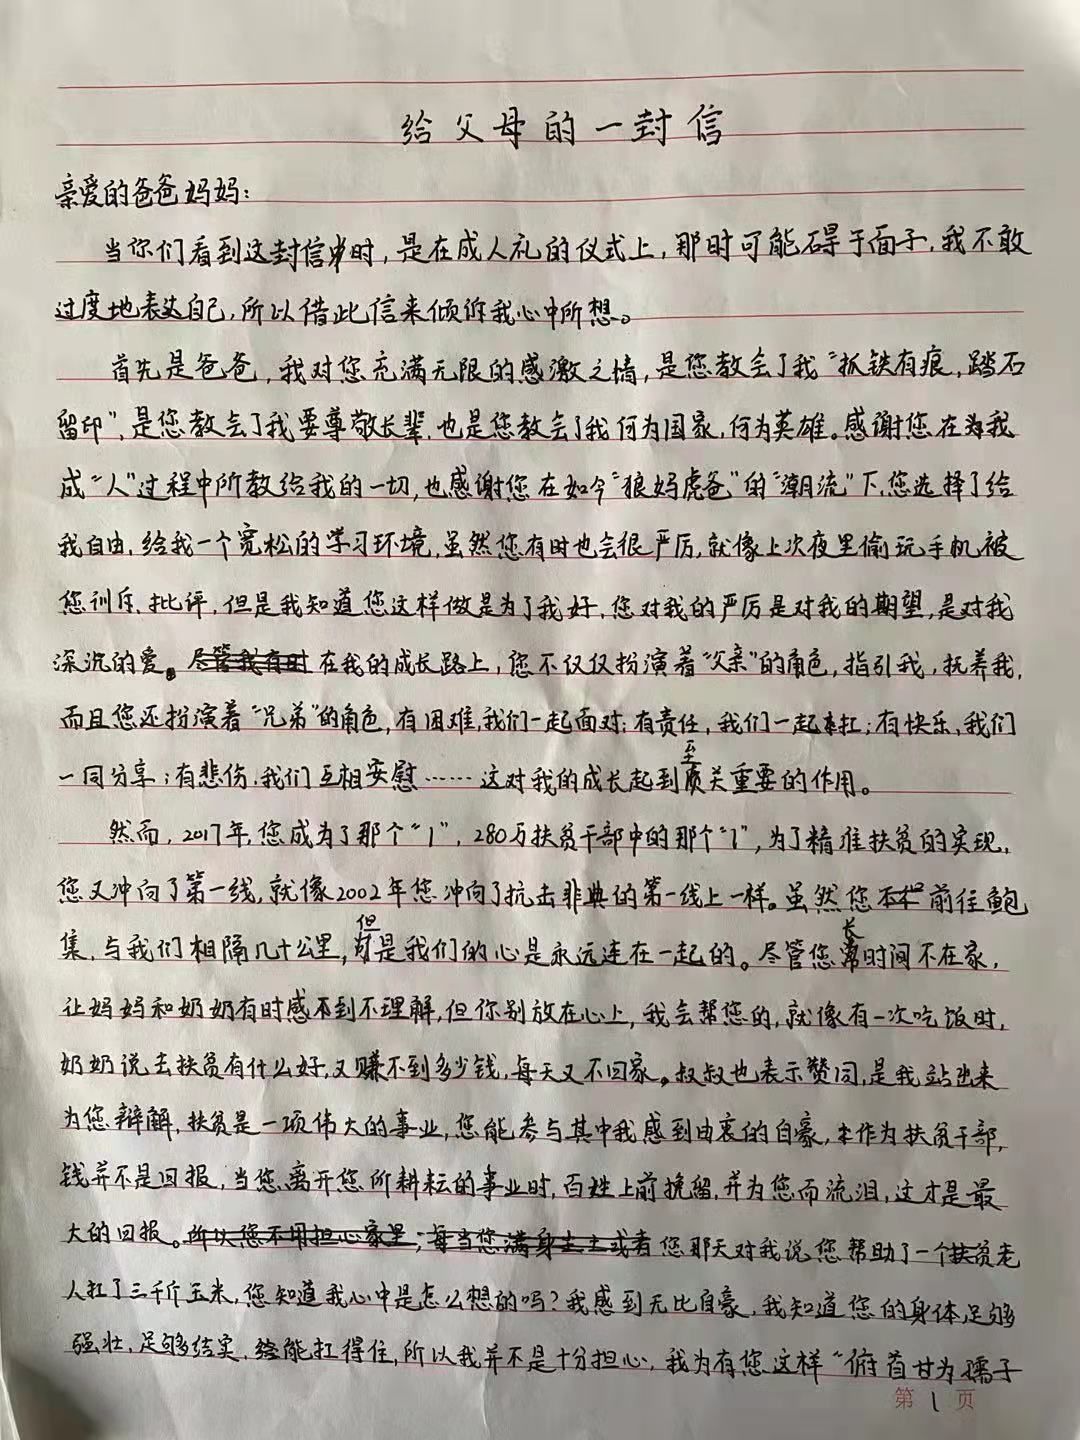 给父母的一封信
亲爱的爸爸妈妈:
当你们看到这封信时，是在成人礼的仪式上，那时可能碍于面子，我不敢
过度地表达自己，所以借此信来倾诉我心中所想。
首先是爸爸，我对您充满无限的感激之情，是您教会了我“抓铁有痕，踏石
留印”，是您教会了我要尊敬长辈，也是您教会了我何为国家，何为英雄。感谢您在我
成“人”过程中所教给我的一切，也感谢您在如今“狼妈虎爸”的“潮流”下，您选择了给
我自由，给我一个宽松的学习环境，虽然您有时也会很严厉，就像上次夜里偷玩手机被
您训斥、批评，但是我知道您这样做是为了我好，您对我的严厉是对我的期望，是对我
深沉的爱。尽管我有时在我的成长路上，您不仅仅扮演着“父亲”的角色，指引我，抚养我，
而且您还扮演着“兄弟”的角色，有困难，我们一起面对；有责任，我们一起扛；有快乐，我们
一同分享；有悲伤，我们互相安慰……这对我的成长起到至关重要的作用。
然而，2017年，您成为了那个“1”，280万扶贫干部中的那个“1”，为了精准扶贫的实现，
您又冲向了第一线，就像2002年您冲向了抗击非典的第一线上一样。虽然您前往鲍
集，与我们相隔几十公里，但是我们的心是永远连在一起的。尽管您长时间不在家，
让妈妈和奶奶有时感到不理解，但你别放在心上，我会帮您的，就像有一次吃饭时，
奶奶说去扶贫有什么好，又赚不到多少钱，每天又不回家。叔叔也表示赞同，是我站出来
为您辩解，扶贫是一项伟大的事业，您能参与其中我感到由衷的自豪，作为扶贫干部，
钱并不是回报，当您离开您所耕耘的事业时，百姓上前挽留，并为您而流泪，这才是最
大的回报。所以您不用担心家里；每当您满身尘土或者您那天对我说，您帮助了一个扶贫老
人扛了三千斤玉米，您知道我心中是怎么想的吗？我感到无比自豪，我知道您的身体足够
强壮，足够结实，能扛得住，所以我并不是十分担心，我为有您这样“俯首甘为孺子
第1页